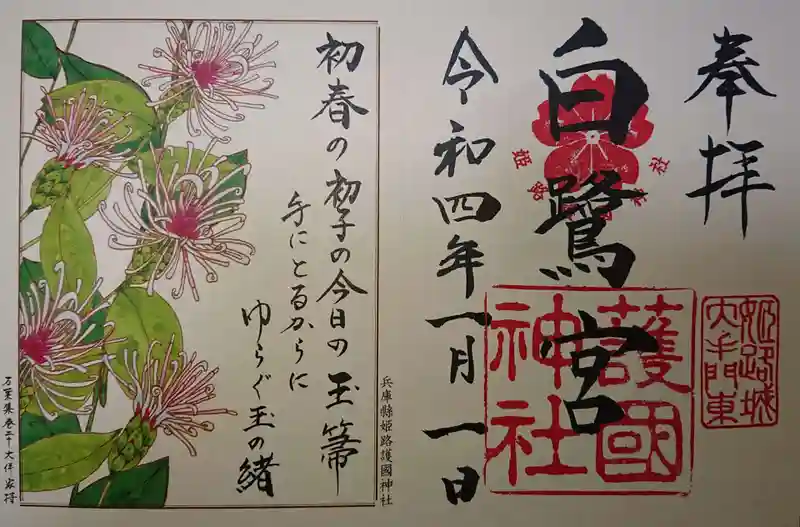 奉拝
姫路城
大手門東
白鷺宮
護國
神社
令和四年一月一日
初春の初子の今日の玉箒
手にとるからに
ゆらぐ玉の緒
兵庫縣姫路護國神社
万葉集巻二十大伴家持